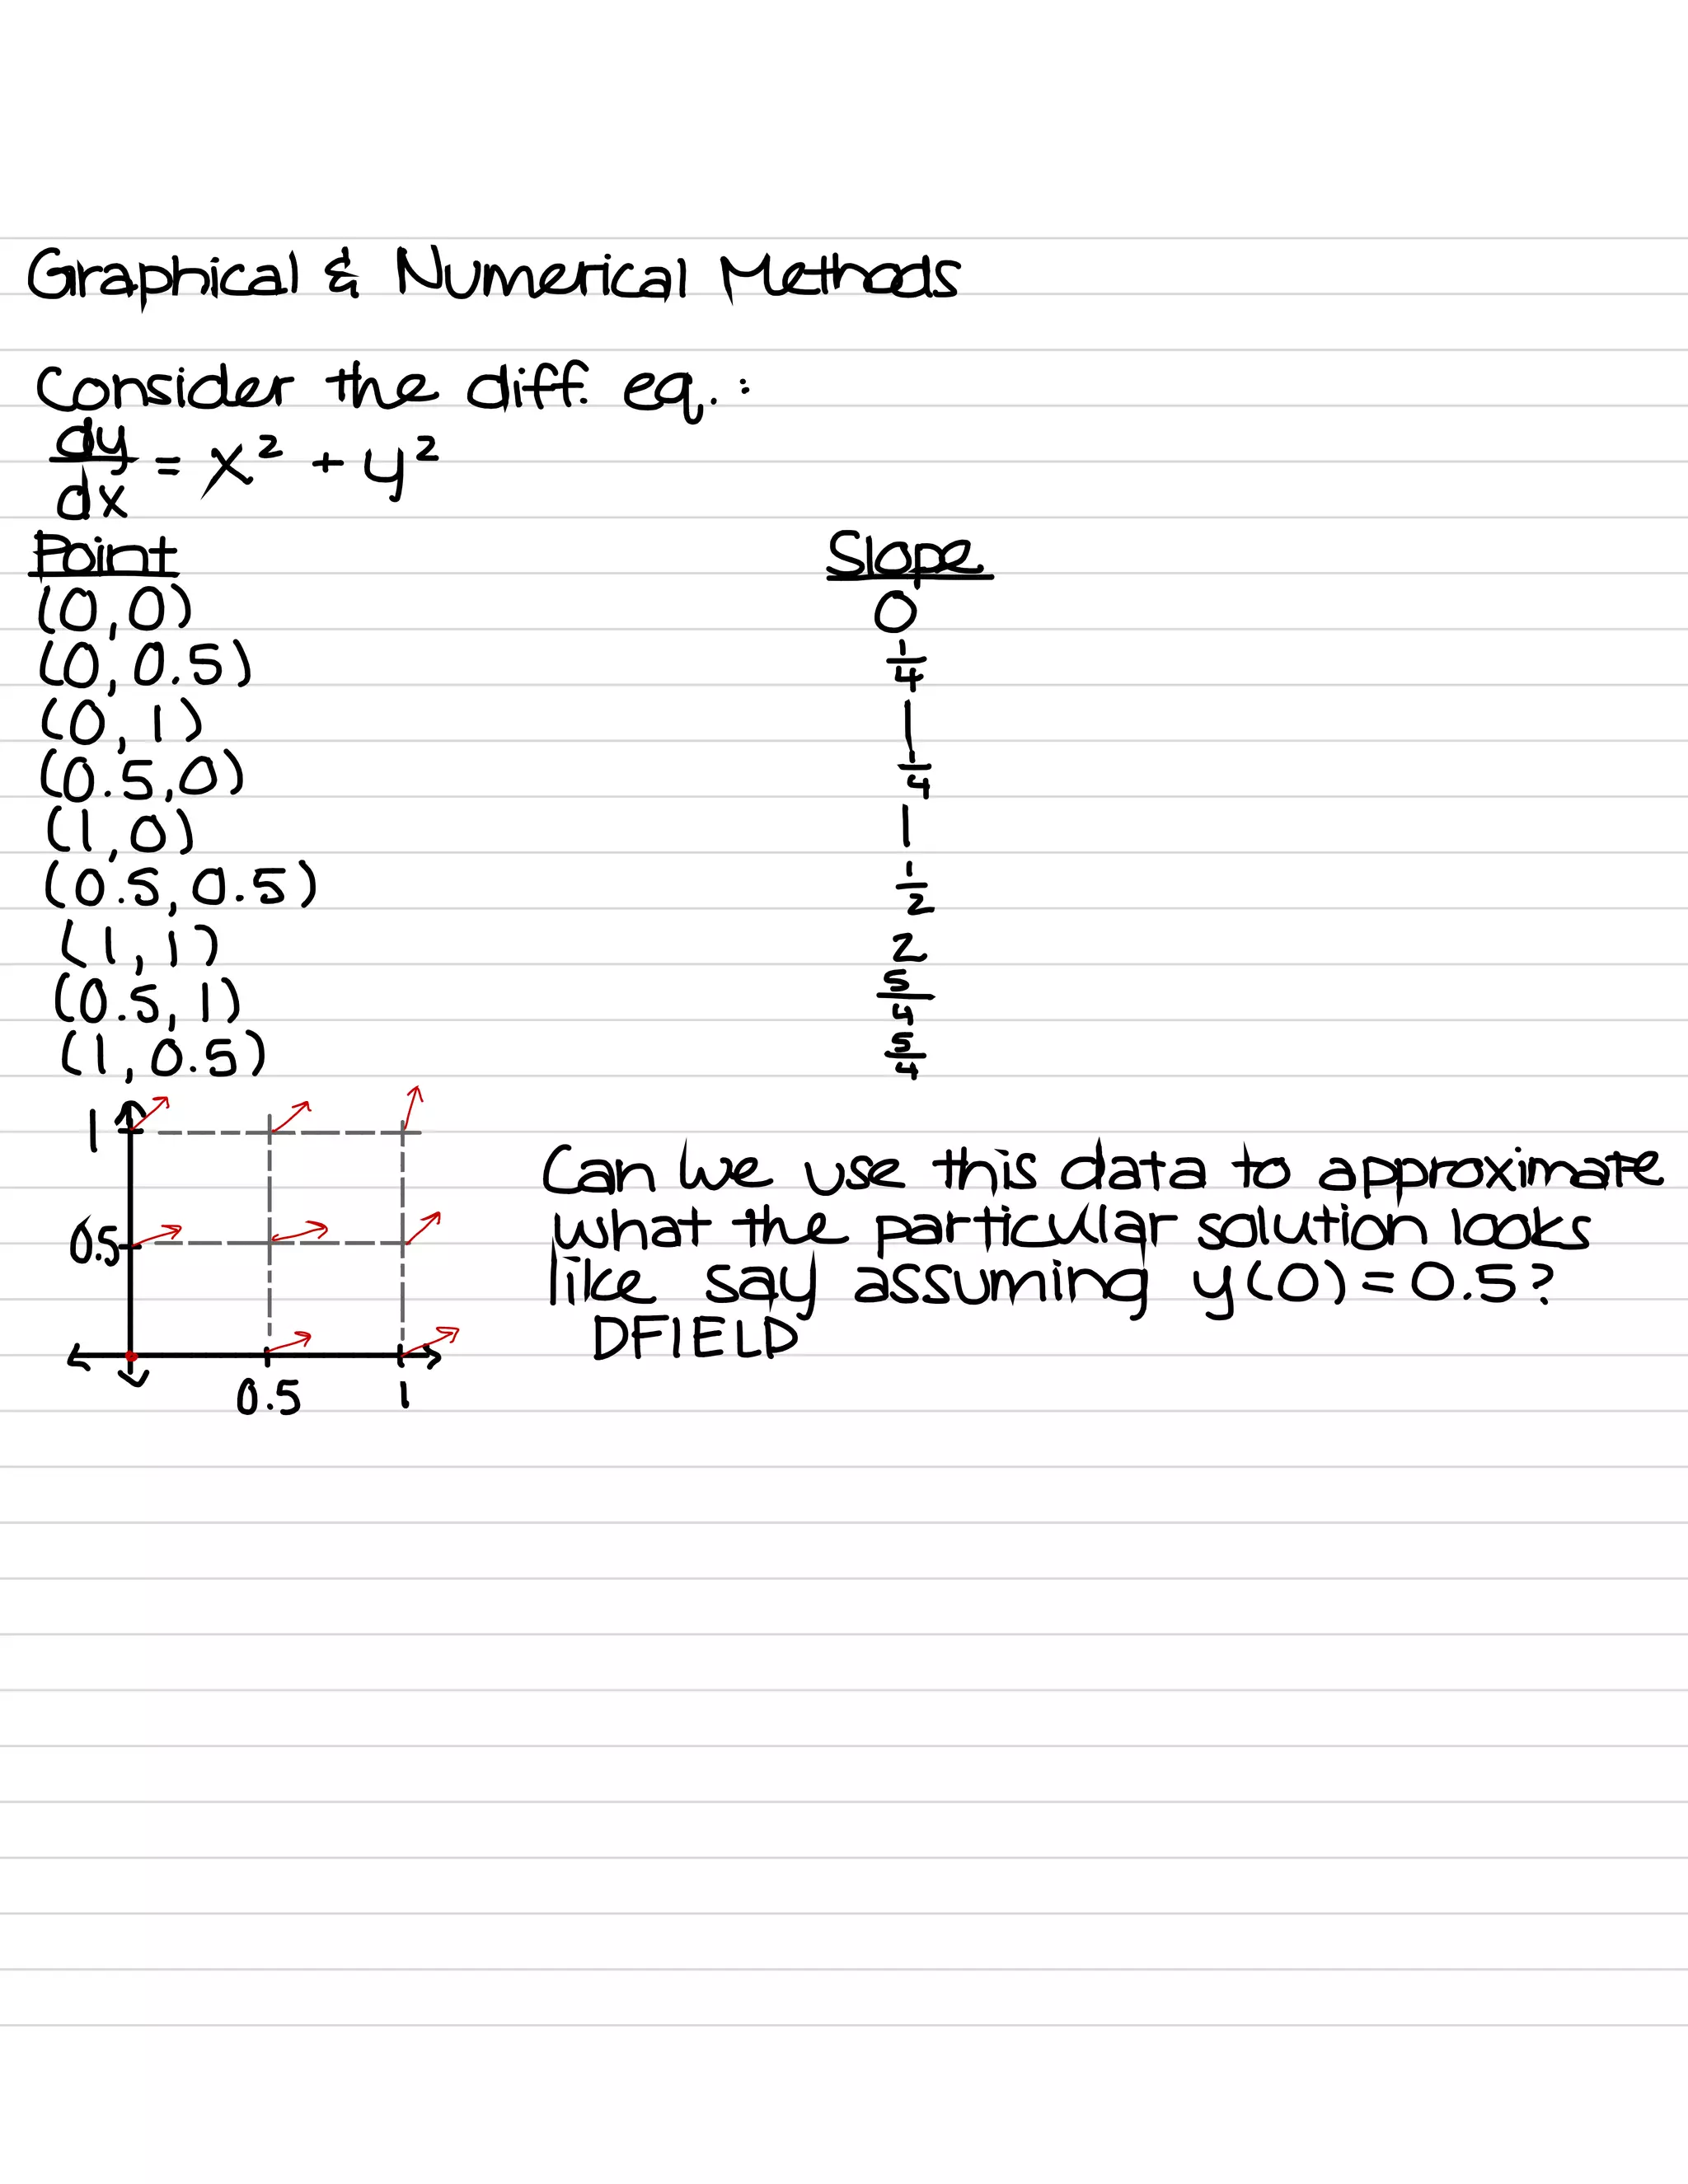 Graphical & Numerical Methods
Consider the diff. eq.:
dy/dx = x² + y²
Point Slope
(0,0) 0
(0,0.5) 1/4
(0,1) 1
(0.5,0) 1/4
(1,0) 1
(0.5,0.5) 1/2
(1,1) 2
(0.5,1) 5/4
(1,0.5) 5/4
1
0.5
0.5 1
Can we use this data to approximate
what the particular solution looks
like say assuming y(0)=0.5?
DFIELD